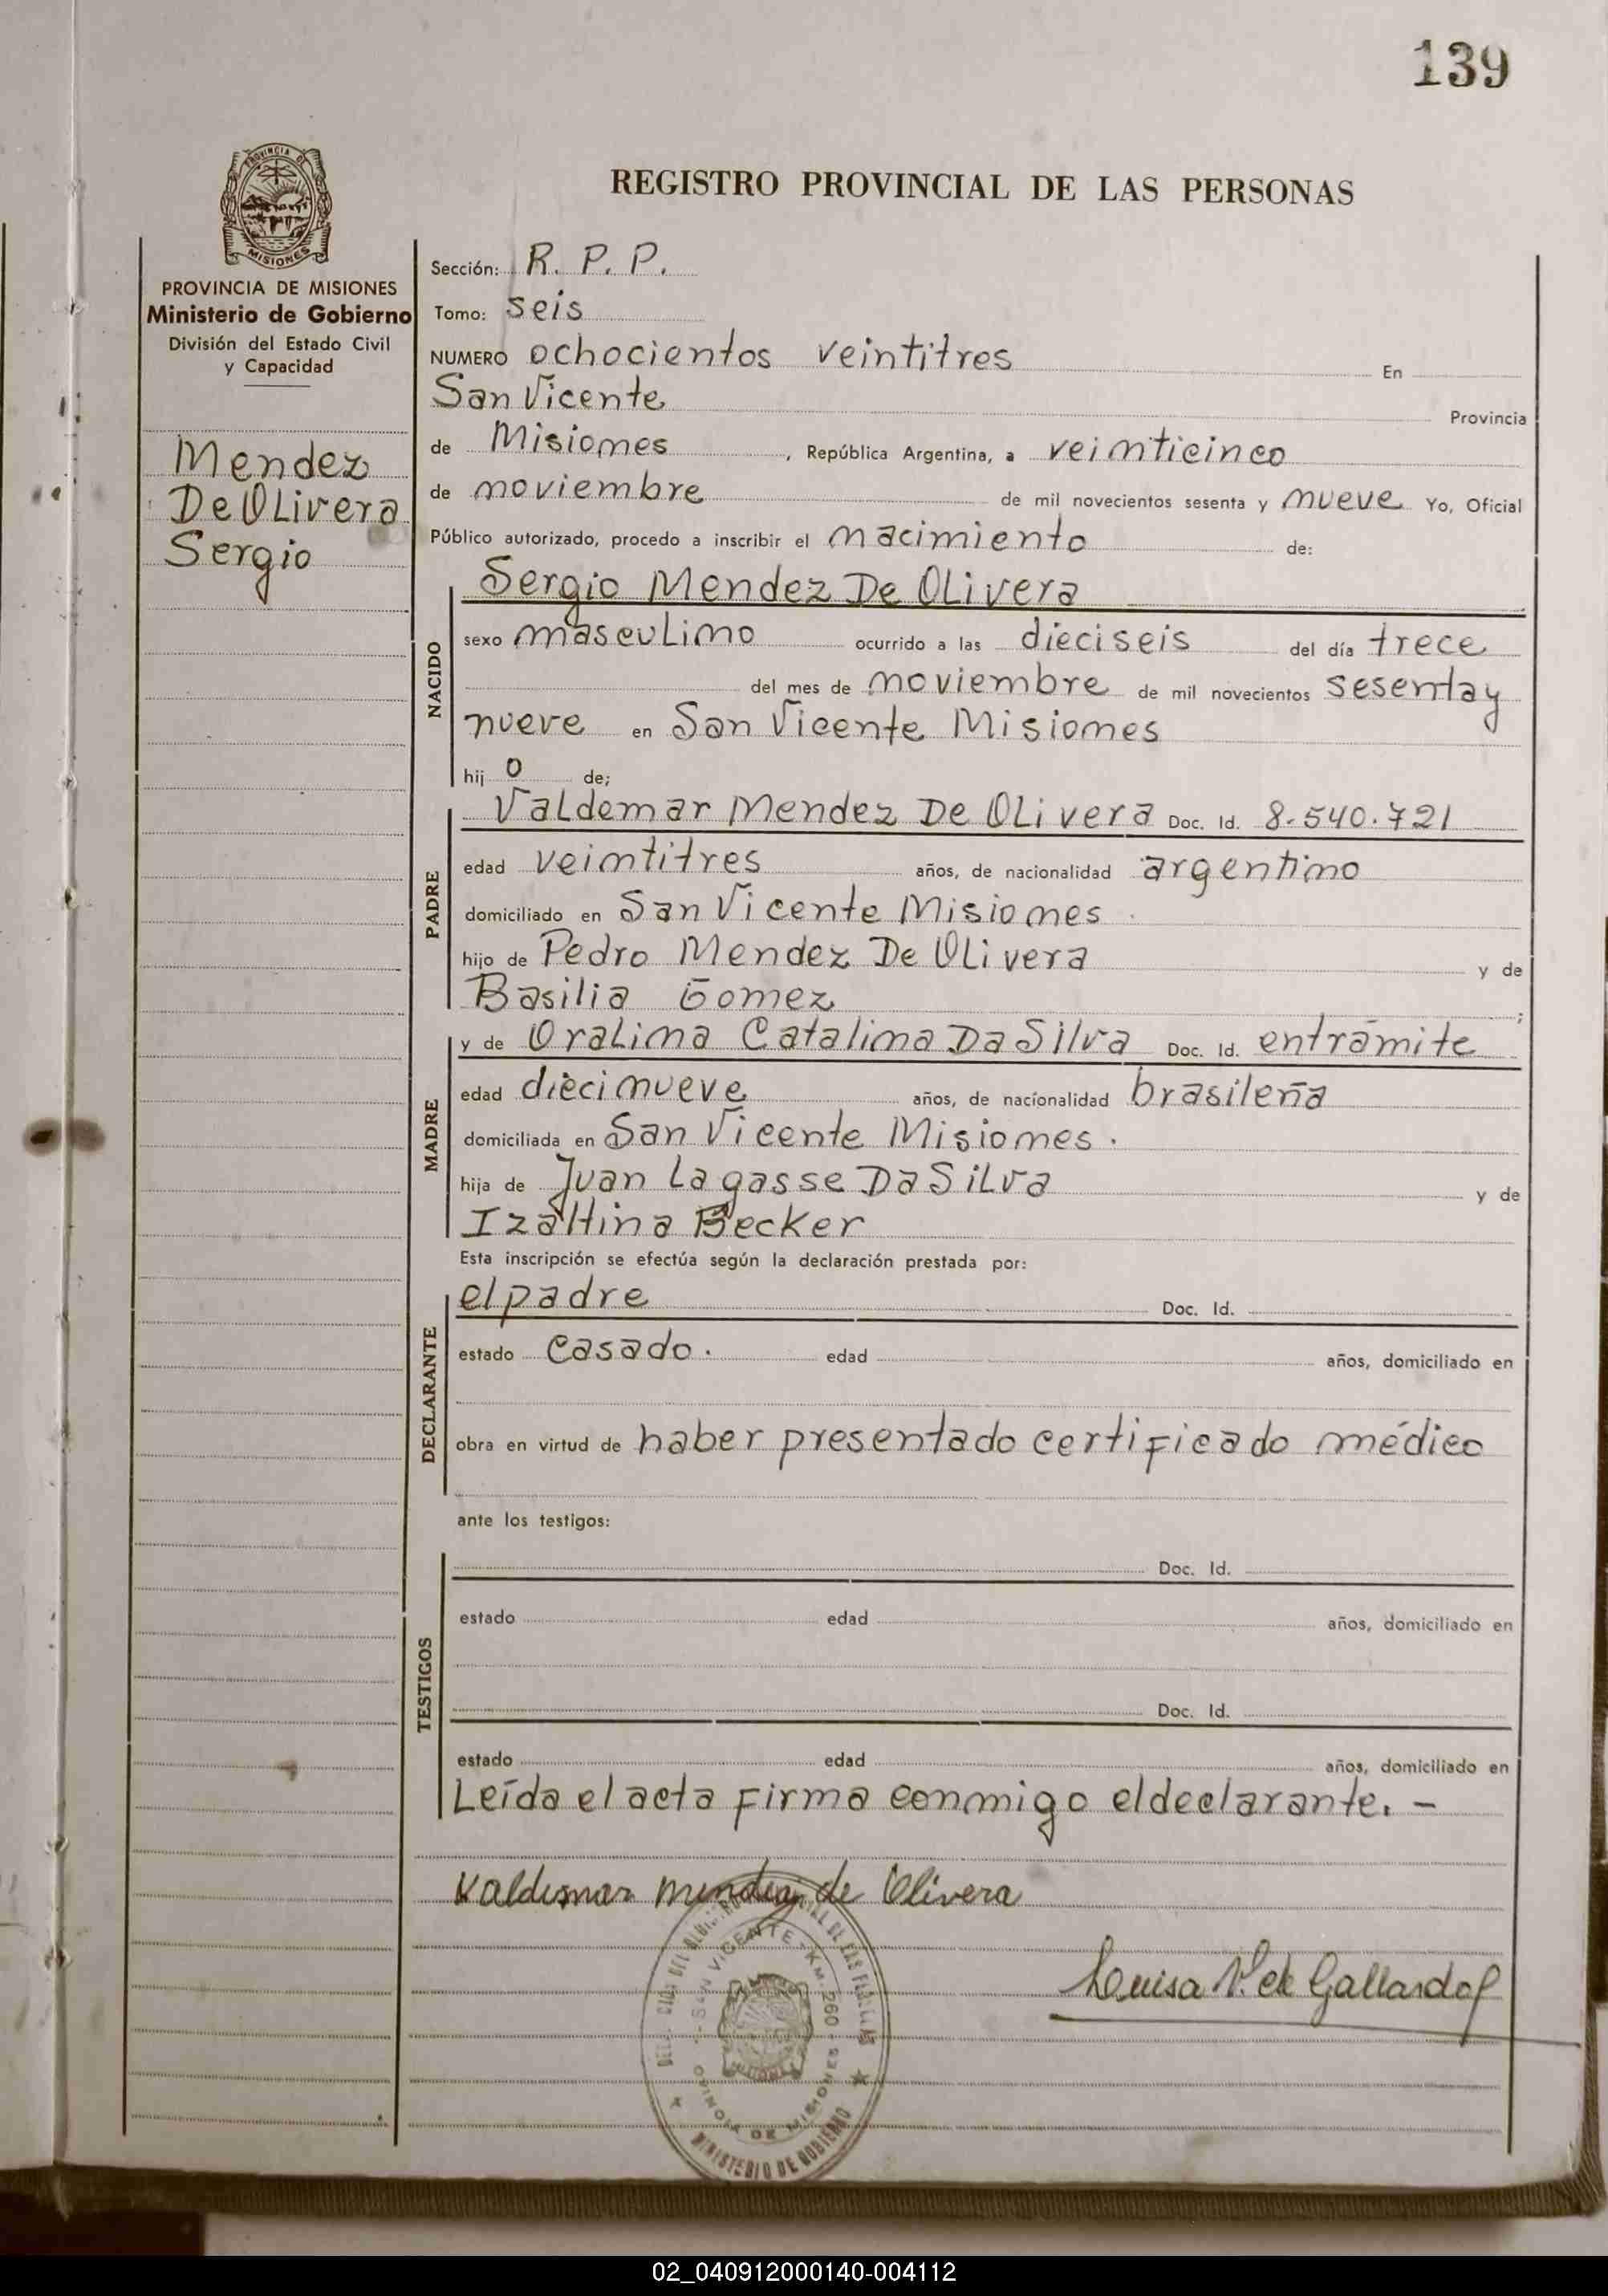 139
PROVINCIA DE
MISIONES
REGISTRO PROVINCIAL DE LAS PERSONAS
PROVINCIA DE MISIONES
Ministerio de Gobierno
División del Estado Civil
y Capacidad
Mendez
De Olivera
Sergio
Sección: R. P. P.
Tomo: seis
NUMERO ochocientos veintitres En
San Vicente Provincia
de Misiones, República Argentina, a veinticinco
de noviembre de mil novecientos sesenta y nueve Yo, Oficial
Público autorizado, procedo a inscribir el nacimiento de:
NACIDO
Sergio Mendez De Olivera
sexo masculino ocurrido a las dieciseis del día trece
del mes de noviembre de mil novecientos sesenta y
nueve en San Vicente Misiones
hij o de;
PADRE
Valdemar Mendez De Olivera Doc. Id. 8.540.721
edad veintitres años, de nacionalidad argentino
domiciliado en San Vicente Misiones.
hijo de Pedro Mendez De Olivera y de
Basilia Gomez;
MADRE
y de Oralina Catalina Da Silva Doc. Id. en trámite
edad diecinueve años, de nacionalidad brasileña
domiciliada en San Vicente Misiones.
hija de Juan Lagasse Da Silva y de
Izaltina Becker
Esta inscripción se efectúa según la declaración prestada por:
DECLARANTE
el padre Doc. Id.
estado Casado. edad años, domiciliado en
obra en virtud de haber presentado certificado médico
ante los testigos:
TESTIGOS
Doc. Id.
estado edad años, domiciliado en
Doc. Id.
estado edad años, domiciliado en
Leída el acta firma conmigo el declarante. -
Valdemar Mendez de Olivera
Luisa V. de Gallardo
SAN VICENTE - KM. 260
DE MISIONES
MINISTERIO DE GOBIERNO
02_040912000140-004112